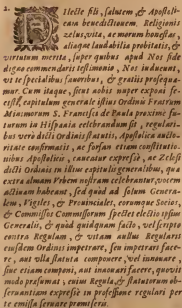 2.
Ilecte fili, salutem, & Apostoli-
cam benedictionem. Religionis
zelus, vita, ac morum honestas,
aliaque laudabilia probitatis, &
virtutum merita, super quibus apud Nos fide
digno commendaris testimonio, Nos inducunt,
vt te specialibus fauoribus, & gratijs prosequa-
mur. Cum itaque, sicut nobis nuper exponi fe-
cisti, capitulum generale istius Ordinis Fratrum
Minimorum S. Francisci de Paula proximè fu-
turum in Hispania celebrandum sit, regulari-
bus verò dicti Ordinis statutis, Apostolica aucto-
ritate confirmatis, ac forsan etiam constitutio-
nibus Apostolicis, caueatur expressè, ac Zelosi
dicti Ordinis in illius capitulis generalibus, qua
extra almam Vrbem nostram celebrantur, vocem
actiuam habeant, sed quòd ad solum Genera-
lem, Vigiles, & Prouinciales, eorumque Socios,
& Commissos Commissorum spectet electio ipsius
Generalis, & quòd quidquam facto, vel scripto
contra Regulam, & vitam nullus Regularis
eiusdem Ordinis impetrare, seu impetrari face-
re, aut vlla statuta componere, vel innouare,
siue etiam componi, aut innouari facere, quouis
modo præsumat; cuius Regula, & statutorum ob-
seruantiam expressè in professione regulari per
te emissa seruare promiseris.